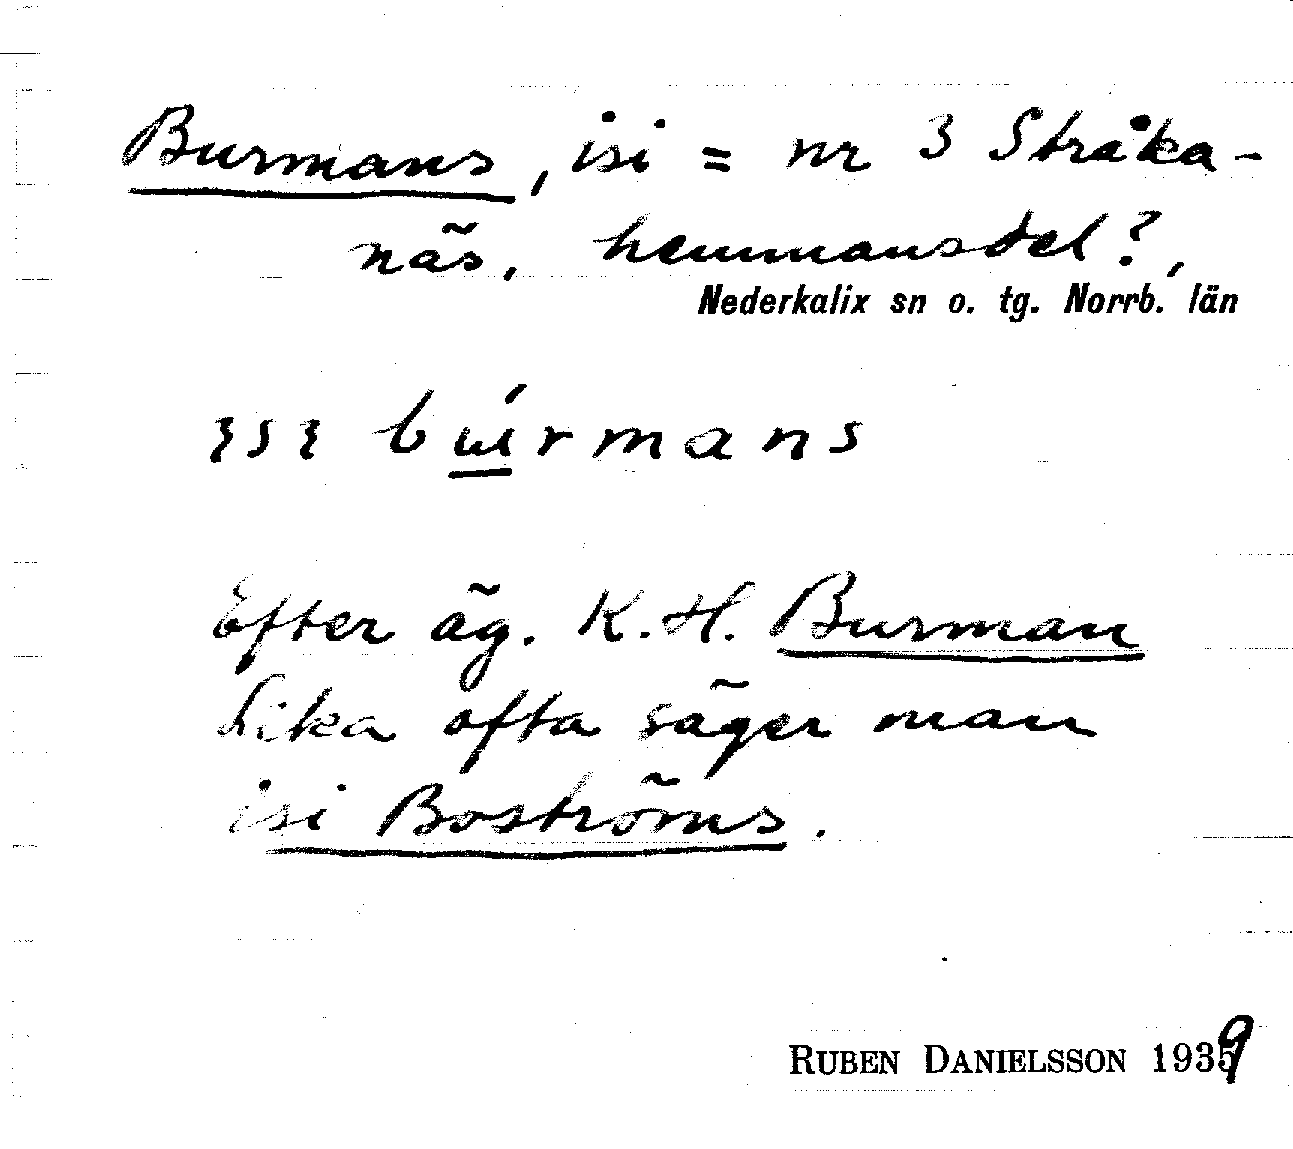 Burmans, isi = nr 3 Stråka-
näs, hemmansdel?,
Nederkalix sn o. tg. Norrb. län
ɩsɩ bú̲rmans
Efter äg. K. H. Burman
Lika ofta säger man
isi Boströms.
RUBEN DANIELSSON 1939